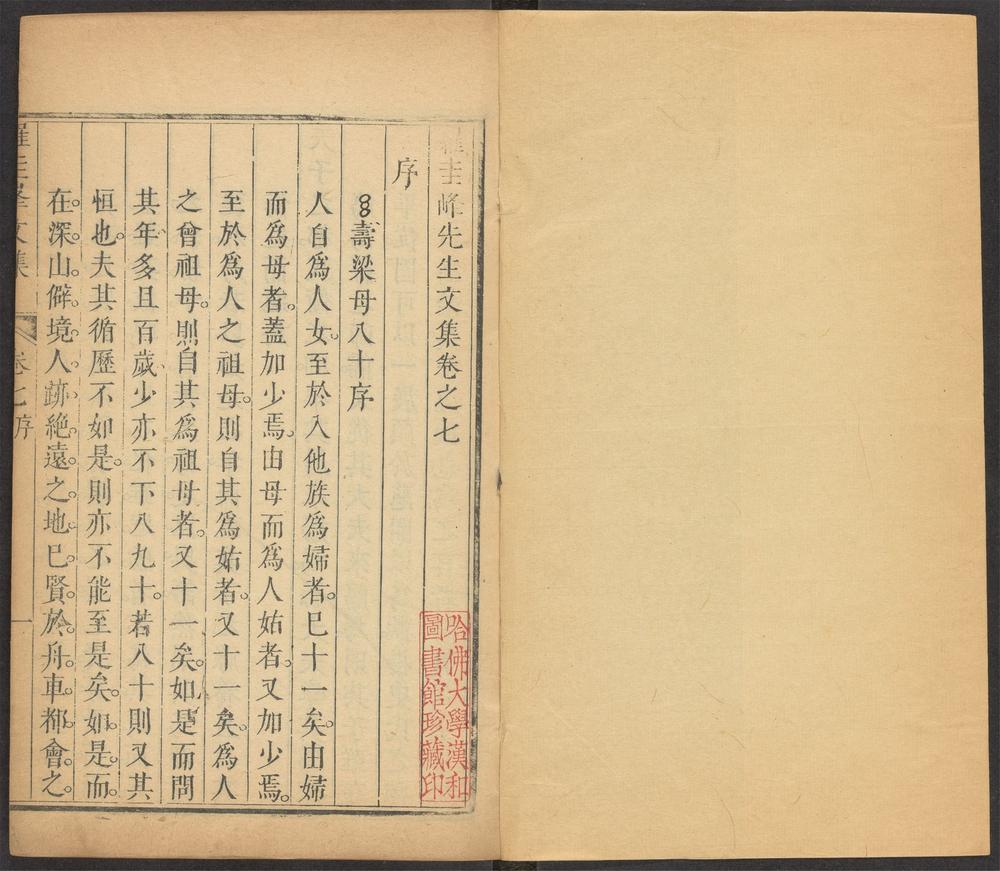 羅圭峰先生文集卷之七
序
壽梁母八十序
人自為人女。至於入他族為婦者。已十一矣。由婦
而為母者。蓋加少焉。由母而為人姑者。又加少焉。
至於為人之祖母。則自其為姑者。又十一矣。為人
之曾祖母。則自其為祖母者。又十一矣。如是而問
其年多且百歲、少亦不下八九十。若八十則又其
恒也。夫其循歷不如是。則亦不能至是矣。如是。而
在。深。山。僻。境。人、跡、絕。遠。之。地。已。賢。於。舟。車。都。會。之。
羅圭峯文集
卷七序
一
哈佛大學漢和
圖書館珍藏印